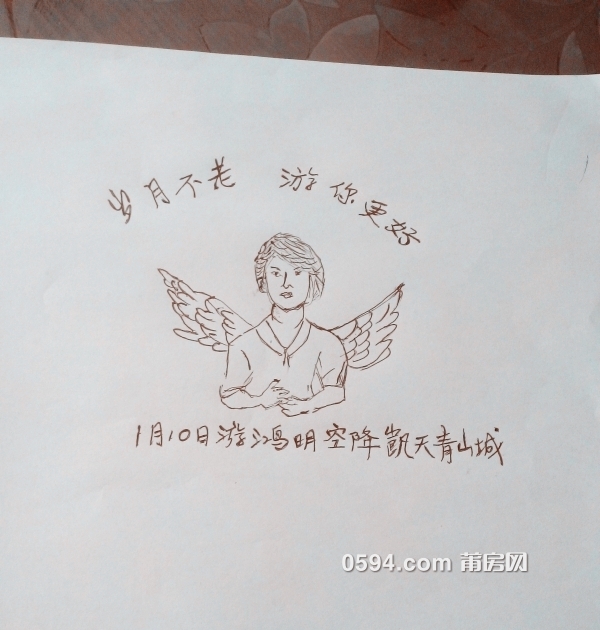 岁月不老 游你更好
1月10日游鸿明空降凯天青山城
0594.com 莆房网